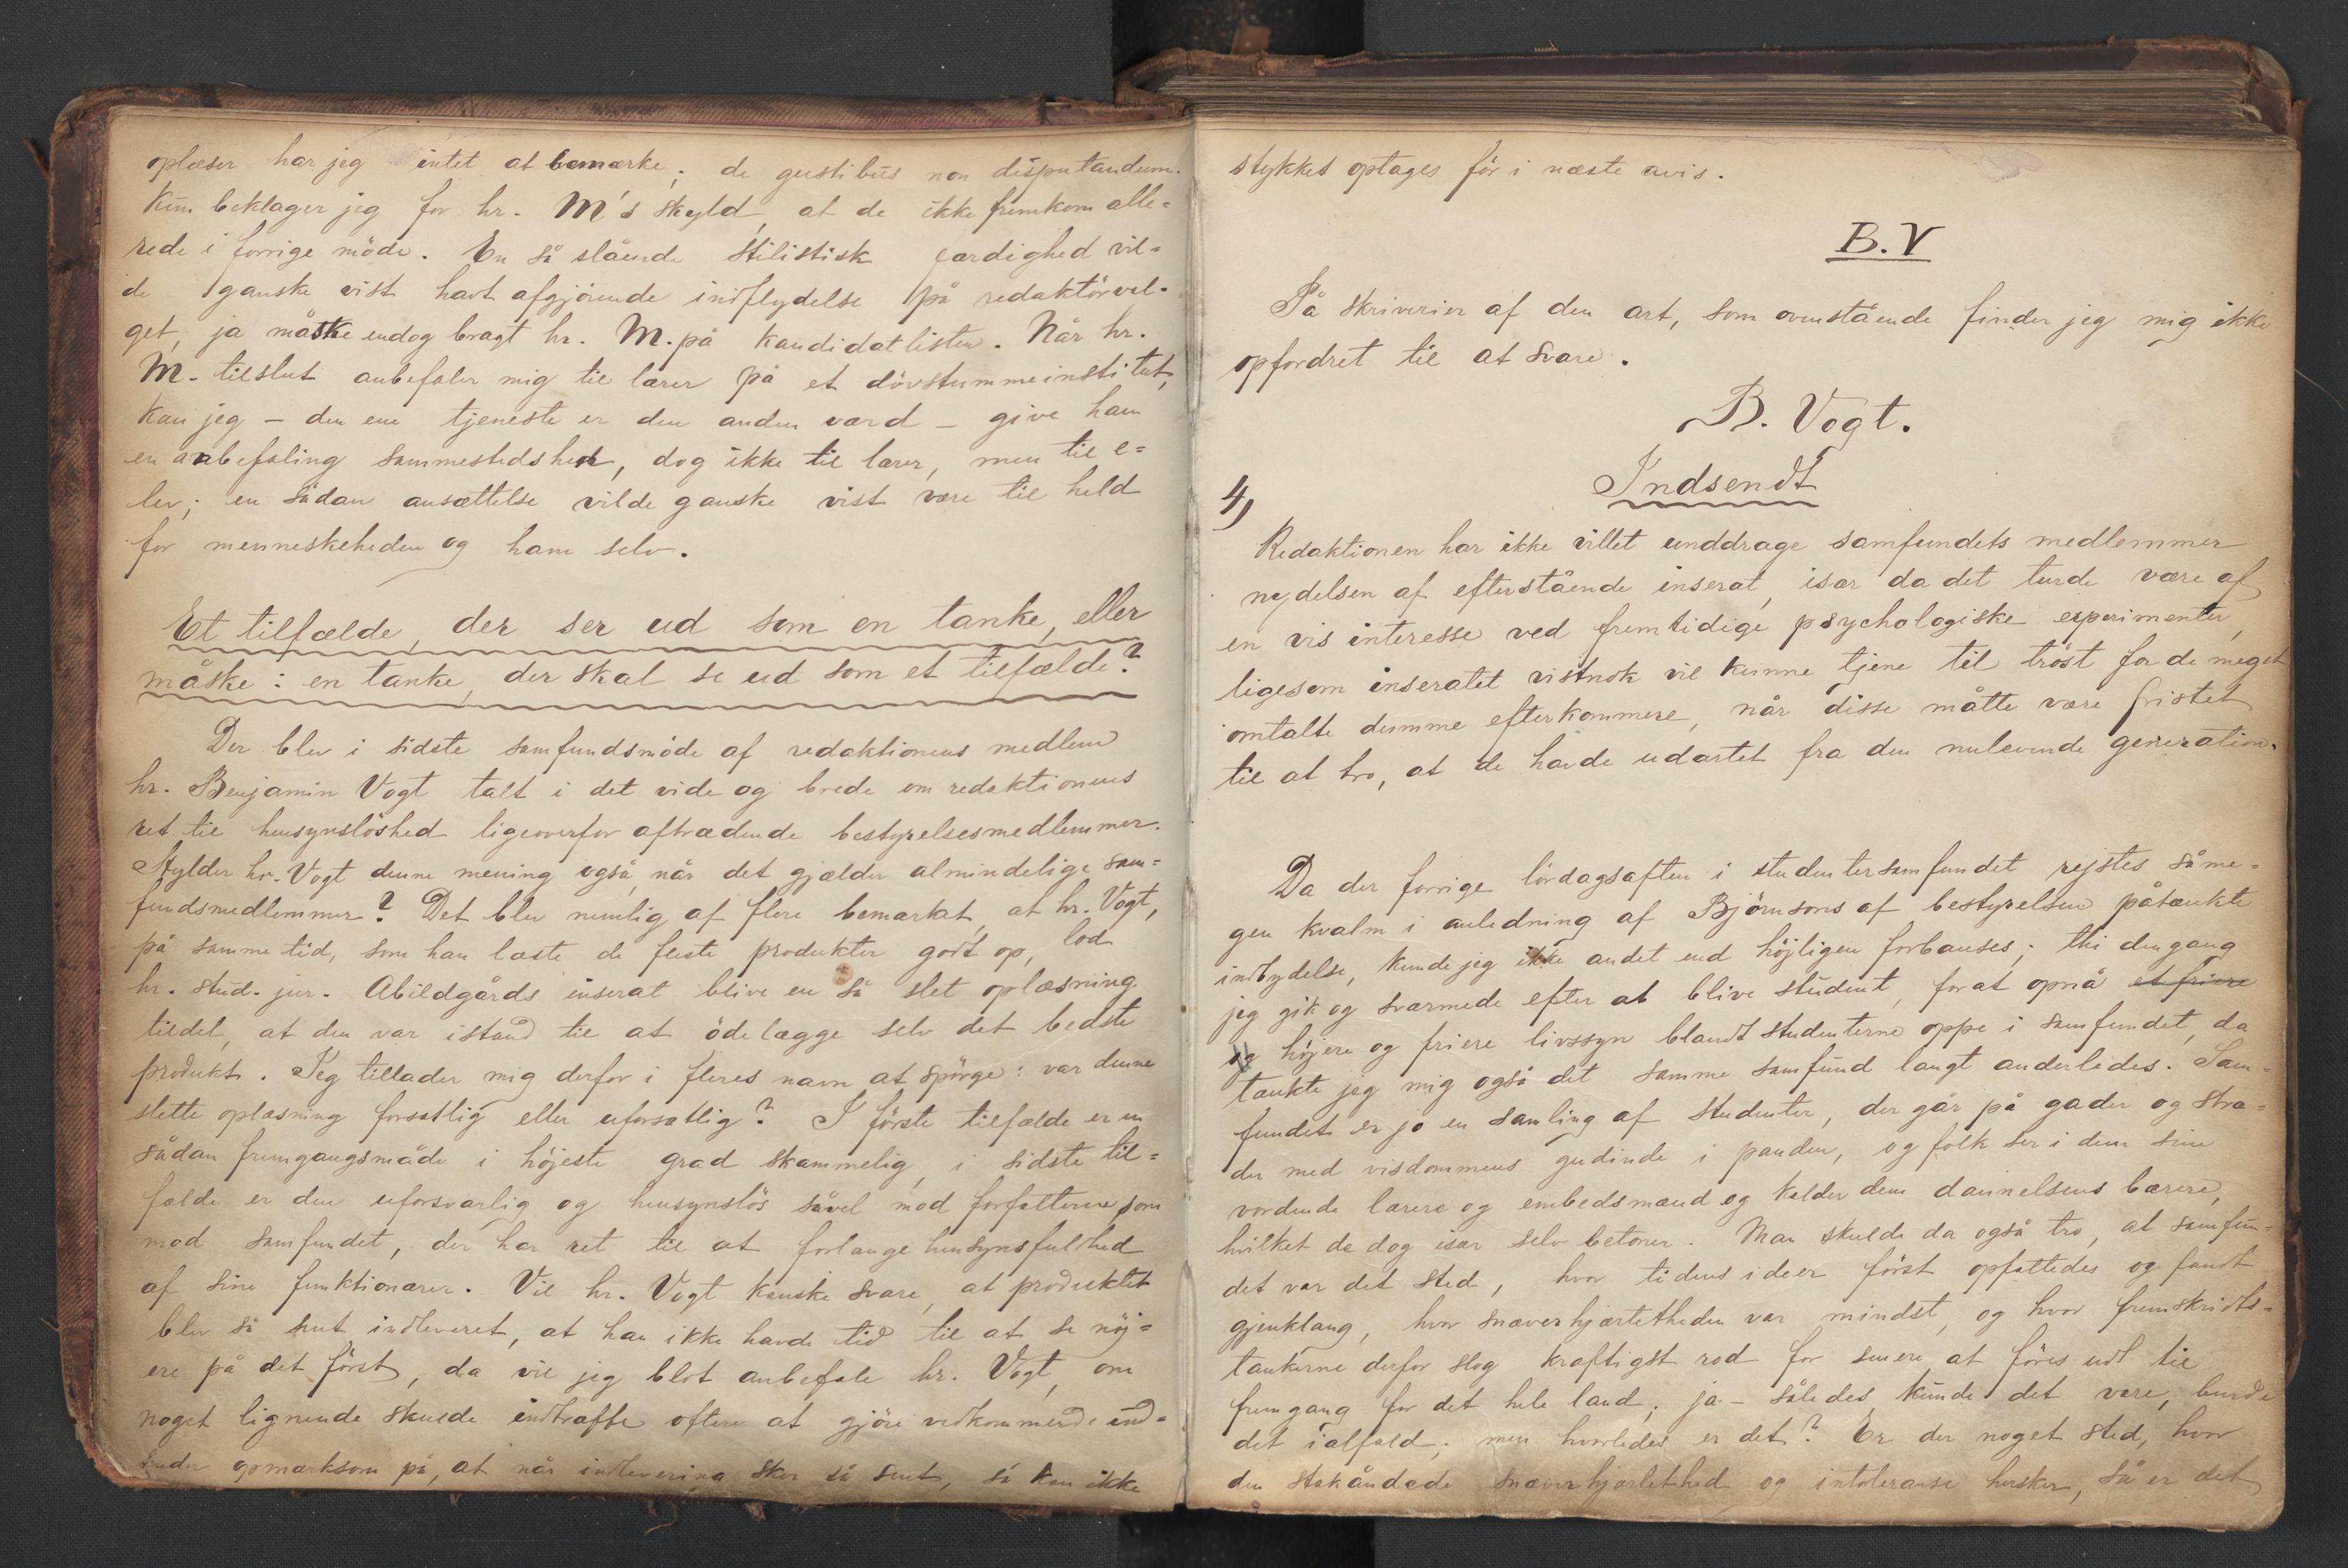 oplæser har jeg intet at bemærke; de gustibus non disputandum.
Kun beklager jeg for hr. M's skyld, at de ikke fremkom alle=
rede i forrige möde. En så slående stilistisk færdighed vil=
de ganske vist havt afgjörende indflydelse på redaktörval-
get, ja måske endog bragt hr. M. på kandidatlisten. Når hr.
M. tilslut anbefaler mig til lærer på et dövstummeinstitut,
kan jeg – den ene tjeneste er den anden værd – give ham
en anbefaling sammestedshen, dog ikke til lærer, men til e=
lev; en sådan ansættelse vilde ganske vist være til held
for menneskeheden og ham selv.
Et tilfælde, der ser ud som en tanke, eller
måske: en tanke, der skal se ud som et tilfælde?
Der blev i sidste samfundsmöde af redaktionens medlem
hr. Benjamin Vogt talt i det vide og brede om redaktionens
ret til hensynslöshed ligeoverfor aftrædende bestyrelsesmedlemmer.
Hylder hr. Vogt denne mening også, når det gjælder almindelige sam=
fundsmedlemmer? Det blev nemlig af flere bemærket, at hr. Vogt,
på samme tid, som han læste de fleste produkter godt op, lod
hr. stud. jur. Abildgårds inserat blive en så slet oplæsning
tildel, at den var istand til at ödelægge selv det bedste
produkt. Jeg tillader mig derfor i fleres navn at spörge: var denne
slette oplæsning forsætlig eller uforsætlig? I förste tilfælde er en
sådan fremgangsmåde i höjeste grad skammelig, i sidste til=
fælde er den uforsvarlig og hensynslös såvel mod forfatterne som
mod samfundet, der har ret til at forlange hensynsfuldhed
af sine funktionærer. Vil hr. Vogt kanske svare, at produktet
blev så sent indleveret, at han ikke havde tid til at se nöj=
ere på det först, da vil jeg blot anbefale hr. Vogt, om
noget lignende skulde indtræffe oftere at gjöre vedkommende ind=
sender opmærksom på, at når indlevering sker så sent, så kan ikke
stykket optages för i næste avis.
B.V
På skriverier af den art, som ovenstående finder jeg mig ikke
opfordret til at svare.
B. Vogt.
4) Indsendt
Redaktionen har ikke villet unddrage samfundets medlemmer
nydelsen af efterstående inserat, især da det turde være af
en vis interesse ved fremtidige psychologiske experimenter,
ligesom inseratet vistnok vil kunne tjene til tröst for de meget
omtalte dumme efterkommere, når disse måtte være fristet
til at tro, at de havde udartet fra den nulevende generation.
Da der forrige lördagsaften i studentersamfundet rejstes såme=
gen kvalm i anledning af Björnsons af bestyrelsen påtænkte
indbydelse, kunde jeg ikke andet end höjligen forbauses; thi dengang
jeg gik og sværmede efter at blive student, for at opnå et friere
og höjere og friere livssyn blandt studenterne oppe i samfundet, da
tænkte jeg mig også det samme samfund langt anderledes. Sam=
fundet er jo en samling af studenter, der går på gader og stræ=
der med visdommens gudinde i panden, og folk ser i dem sine
vordende lærere og embedsmænd og kalder dem dannelsens bærere,
hvilket de dog især selv betoner. Man skulde da også tro, at samfun=
det var det sted, hvor tidens ideer först opfattedes og fandt
gjenklang, hvor snæverhjærtetheden var mindst, og hvor fremskridts=
tankerne derfor slog kraftigst rod for senere at föres udt til
fremgang for det hele land; ja – således kunde det være, burde
det ialfald; men hvorledes er det? Er der noget sted, hvor
den stakåndede snæverhjærtethed og intoleranse hersker, så er det